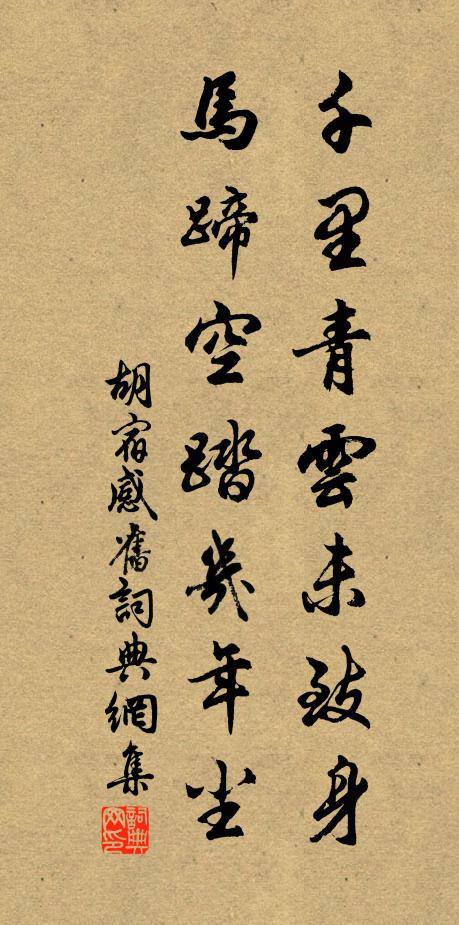 千里青雲未致身
馬蹄空踏幾年塵
胡宿感舊詞典網集
詞典網印